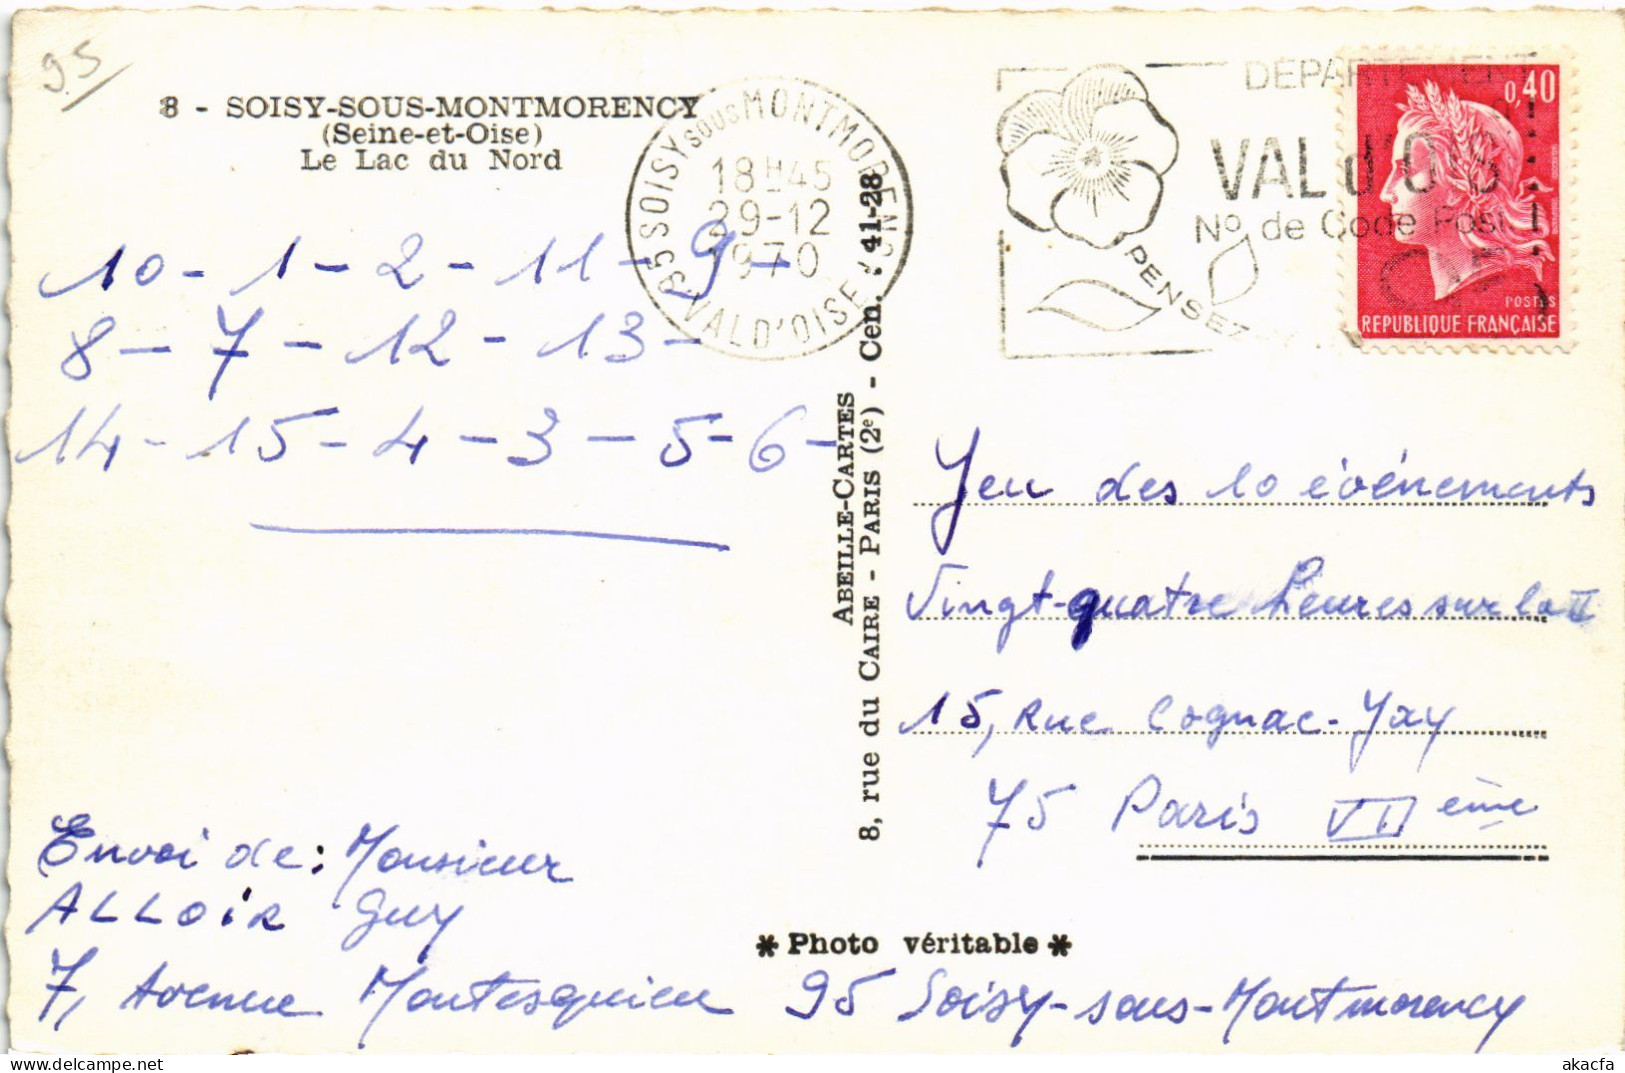 95
8 - SOISY-SOUS-MONTMORENCY
(Seine-et-Oise)
Le Lac du Nord
95 SOISY SOUS MONTMORENCY
18H45
29-12
1970
VAL D'OISE
DEPARTEMENT
VAL d'OIS
No de Code Post
PENSEZ
0,40
POSTES
REPUBLIQUE FRANÇAISE
10 - 1 - 2 - 11 - 9 -
8 - 7 - 12 - 13 -
14 - 15 - 4 - 3 - 5 - 6 -
ABEILLE-CARTES
8, rue du CAIRE - PARIS (2e) - Cen. 41-28
Jeu des 10 événements
Vingt-quatre heures sur la II
15, Rue Cognac-Jay
75 Paris VII ème
Envoi de : Monsieur
ALLOIR Guy
* Photo véritable *
7, Avenue Montesquieu 95 Soisy-sous-Montmorency
akacfa